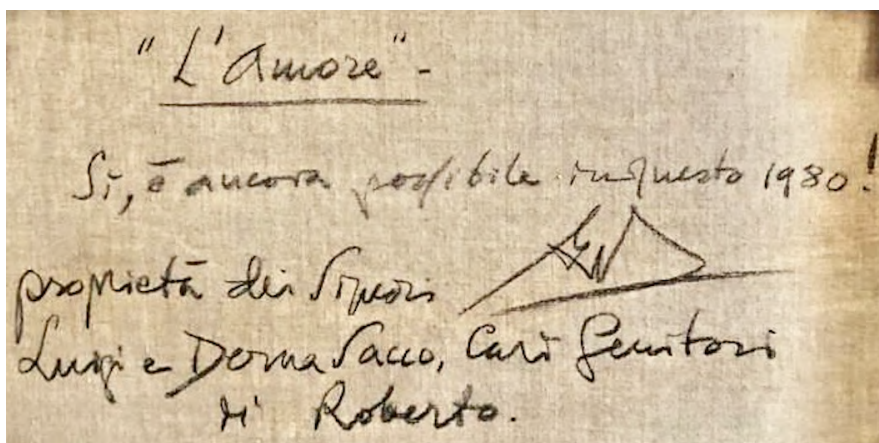 "L'Amore"-
Sì, è ancora possibile in questo 1980!
proprietà dei Signori
Luigi e Dorna Sacco, Cari Genitori
di Roberto.